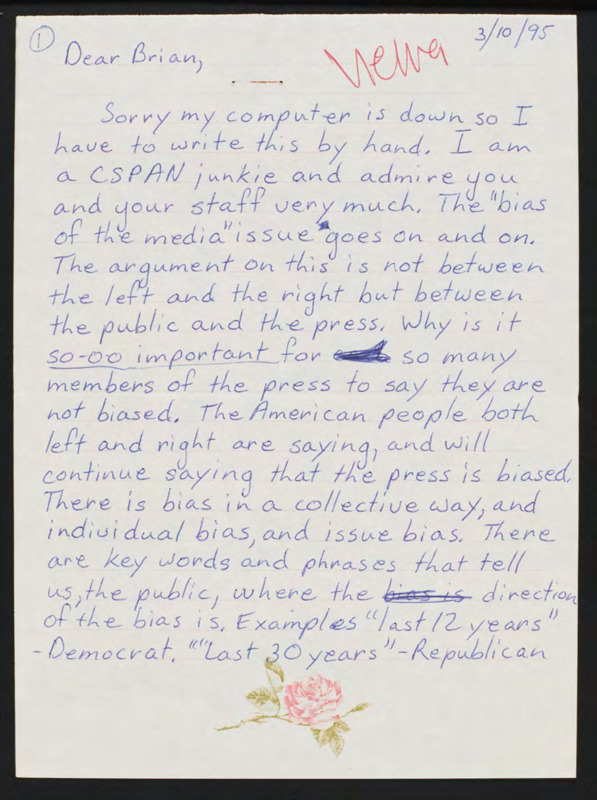 ① 3/10/95
Dear Brian,
Sorry my computer is down so I
have to write this by hand. I am
a CSPAN junkie and admire you
and your staff very much. The "bias
of the media" issue goes on and on.
The argument on this is not between
the left and the right but between
the public and the press. Why is it
so-oo important for so many
members of the press to say they are
not biased. The American people both
left and right are saying, and will
continue saying that the press is biased.
There is bias in a collective way, and
individual bias, and issue bias. There
are key words and phrases that tell
us, the public, where the bias is direction
of the bias is. Examples "last 12 years"
-Democrat. ""Last 30 years"-Republican